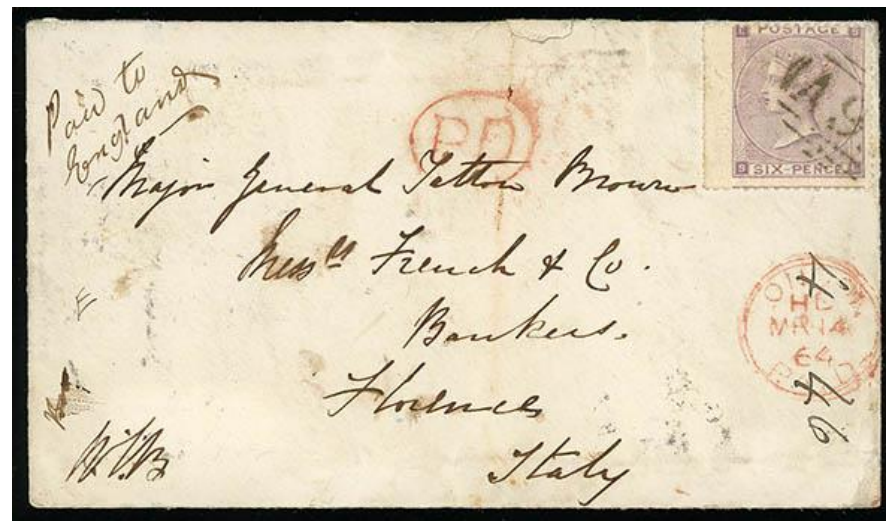 Paid to
England
POSTAGE
SIX-PENCE
PD
Major General Tatton Brown
Mess rs French & Co.
Bankers.
Florence
Italy
MR 14
64
PAID